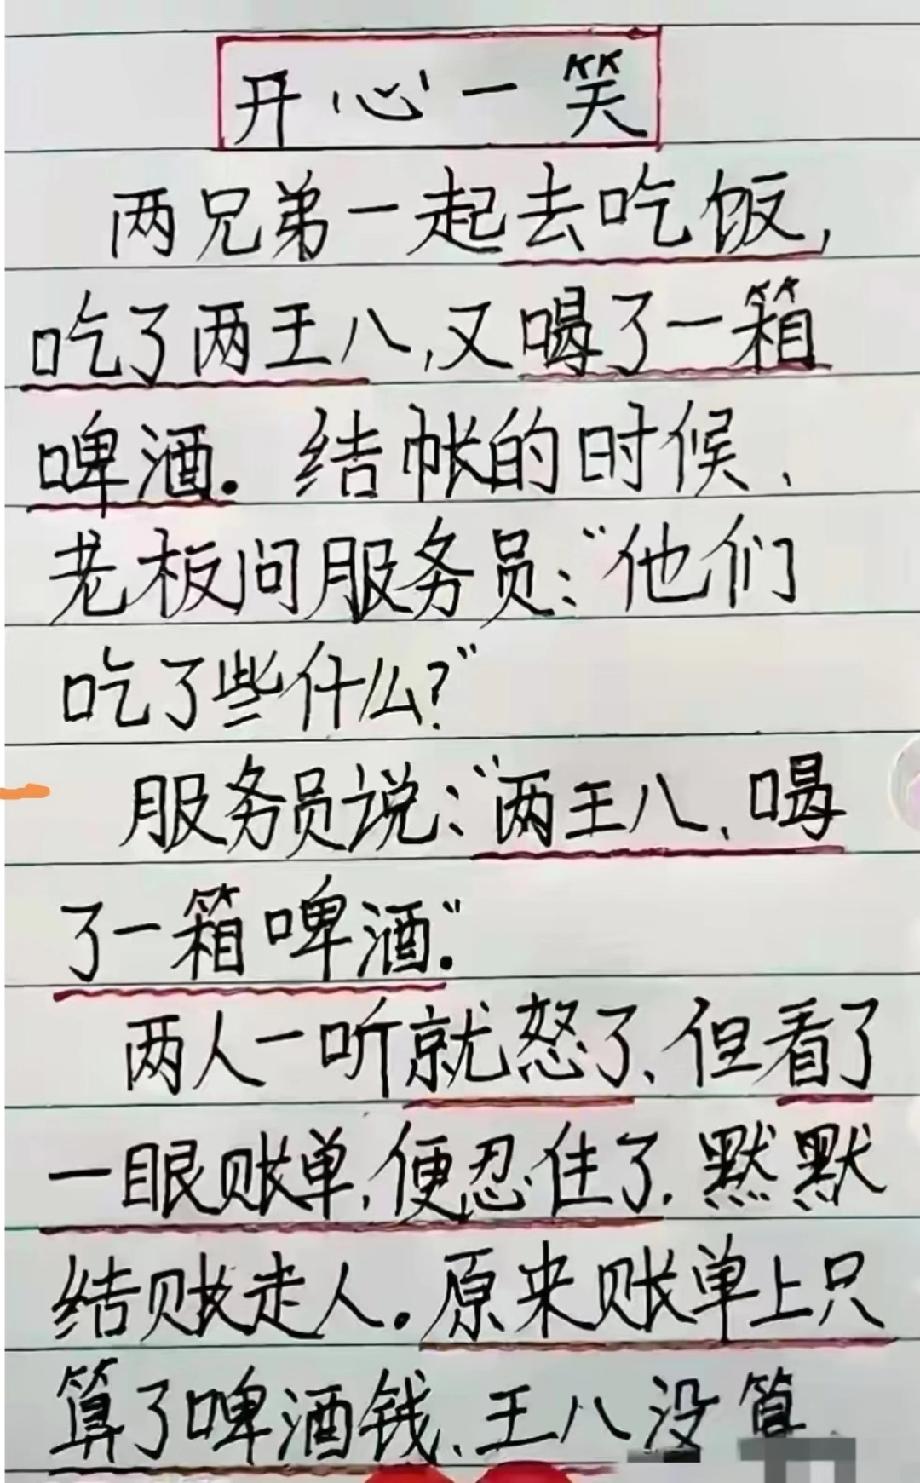 开心一笑
两兄弟一起去吃饭,
吃了两王八,又喝了一箱
啤酒。结帐的时候、
老板问服务员:“他们
吃了些什么?”
服务员说:“两王八、喝
了一箱啤酒。”
两人一听就怒了、但看了
一眼账单,便忍住了.默默
结账走人。原来账单上只
算了啤酒钱、王八没算